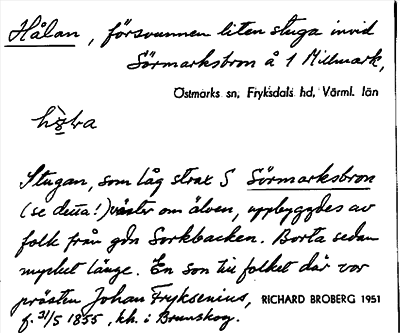 Hålan, försvunnen liten stuga invid
Sörmarksbron å 1 Millmark,
Östmarks sn, Fryksdals hd, Värml. län
Stugan, som låg strax S Sörmarksbron
(se detta!) väster om älven, uppbyggdes av
folk från gdn Sorkbacken. Borta sedan
mycket länge. En son till folket där var
prästen Johan Fryksenius, RICHARD BROBERG 1951
f. 31/5 1855, kh. i Brunskog.